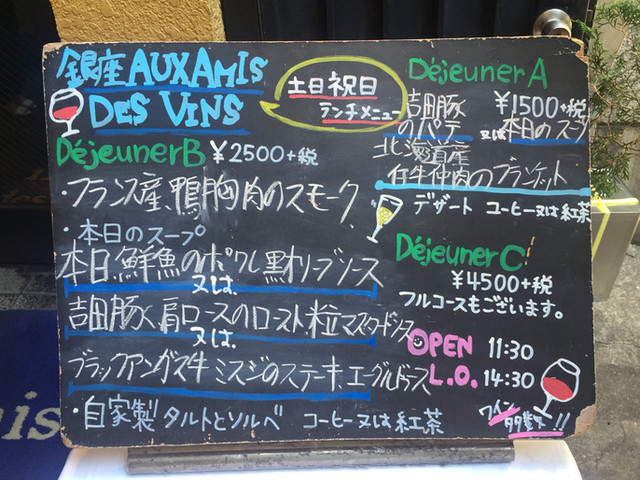 銀座 AUX AMIS
DES VINS
土日祝日
ランチメニュー
Déjeuner A
¥1500+税
吉田豚
のパテ 又は 本日のスープ
北海道産
仔牛肉のブランケット
デザート コーヒー又は紅茶
Déjeuner B ¥2500+税
・フランス産、鴨胸肉のスモーク
・本日のスープ
本日、鮮魚のポワレ 黒オリーブソース
又は
吉田豚、肩ロースのロースト 粒マスタードソース
又は
ブラックアンガス牛 ミスジのステーキ、エーグルドゥース
・自家製 タルトとソルベ コーヒー又は紅茶
Déjeuner C
¥4500+税
フルコースもございます。
OPEN 11:30
L.O. 14:30
ワイン
多数!!
is